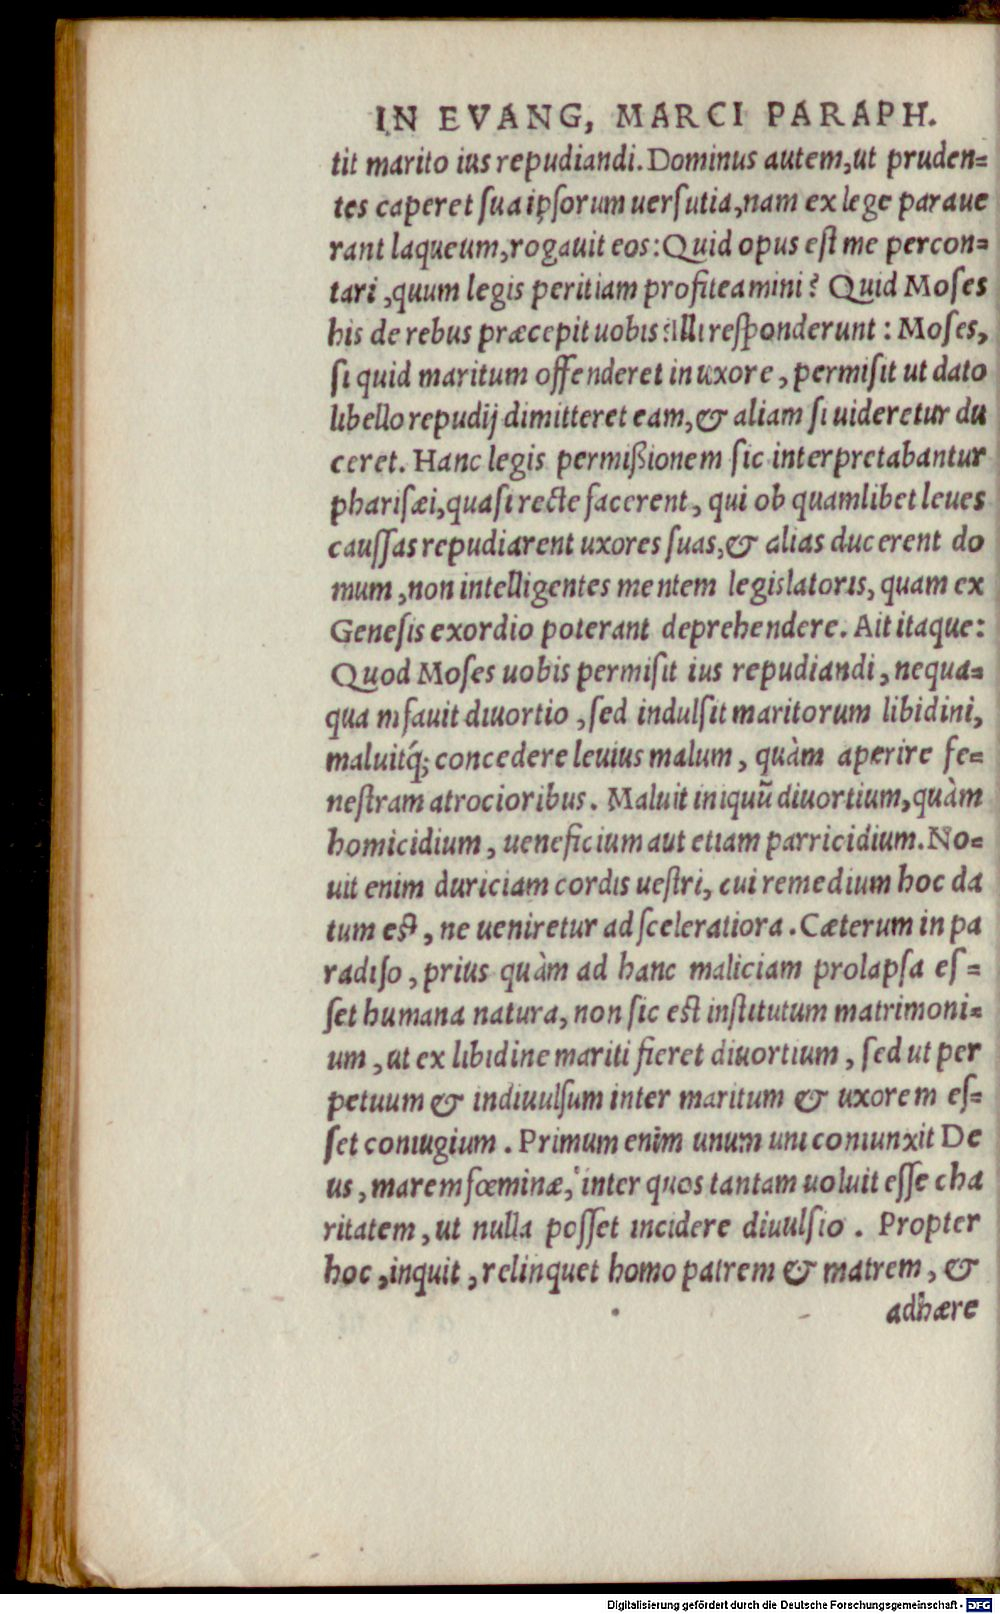 IN EVANG, MARCI PARAPH.
tit marito ius repudiandi. Dominus autem, ut pruden=
tes caperet sua ipsorum uersutia, nam ex lege paraue
rant laqueum, rogauit eos: Quid opus est me percon=
tari, quum legis peritiam profiteamini? Quid Moses
his de rebus præcepit uobis? Illi responderunt: Moses,
si quid maritum offenderet in uxore, permisit ut dato
libello repudij dimitteret eam, & aliam si uideretur du
ceret. Hanc legis permißionem sic interpretabantur
pharisæi, quasi recte facerent, qui ob quamlibet leues
caussas repudiarent uxores suas, & alias ducerent do
mum, non intelligentes mentem legislatoris, quam ex
Genesis exordio poterant deprehendere. Ait itaque:
Quod Moses uobis permisit ius repudiandi, nequa=
quam fauit diuortio, sed indulsit maritorum libidini,
maluitq́; concedere leuius malum, quàm aperire fe=
nestram atrocioribus. Maluit iniquũ diuortium, quàm
homicidium, ueneficium aut etiam parricidium. No=
uit enim duriciam cordis uestri, cui remedium hoc da
tum est, ne ueniretur ad sceleratiora. Cæterum in pa
radiso, prius quàm ad hanc maliciam prolapsa es=
set humana natura, non sic est institutum matrimoni=
um, ut ex libidine mariti fieret diuortium, sed ut per
petuum & indiuulsum inter maritum & uxorem es=
set coniugium. Primum enim unum uni coniunxit De
us, marem fœminæ, inter quos tantam uoluit esse cha
ritatem, ut nulla posset incidere diuulsio. Propter
hoc, inquit, relinquet homo patrem & matrem, &
adhære
Digitalisierung gefördert durch die Deutsche Forschungsgemeinschaft - DFG